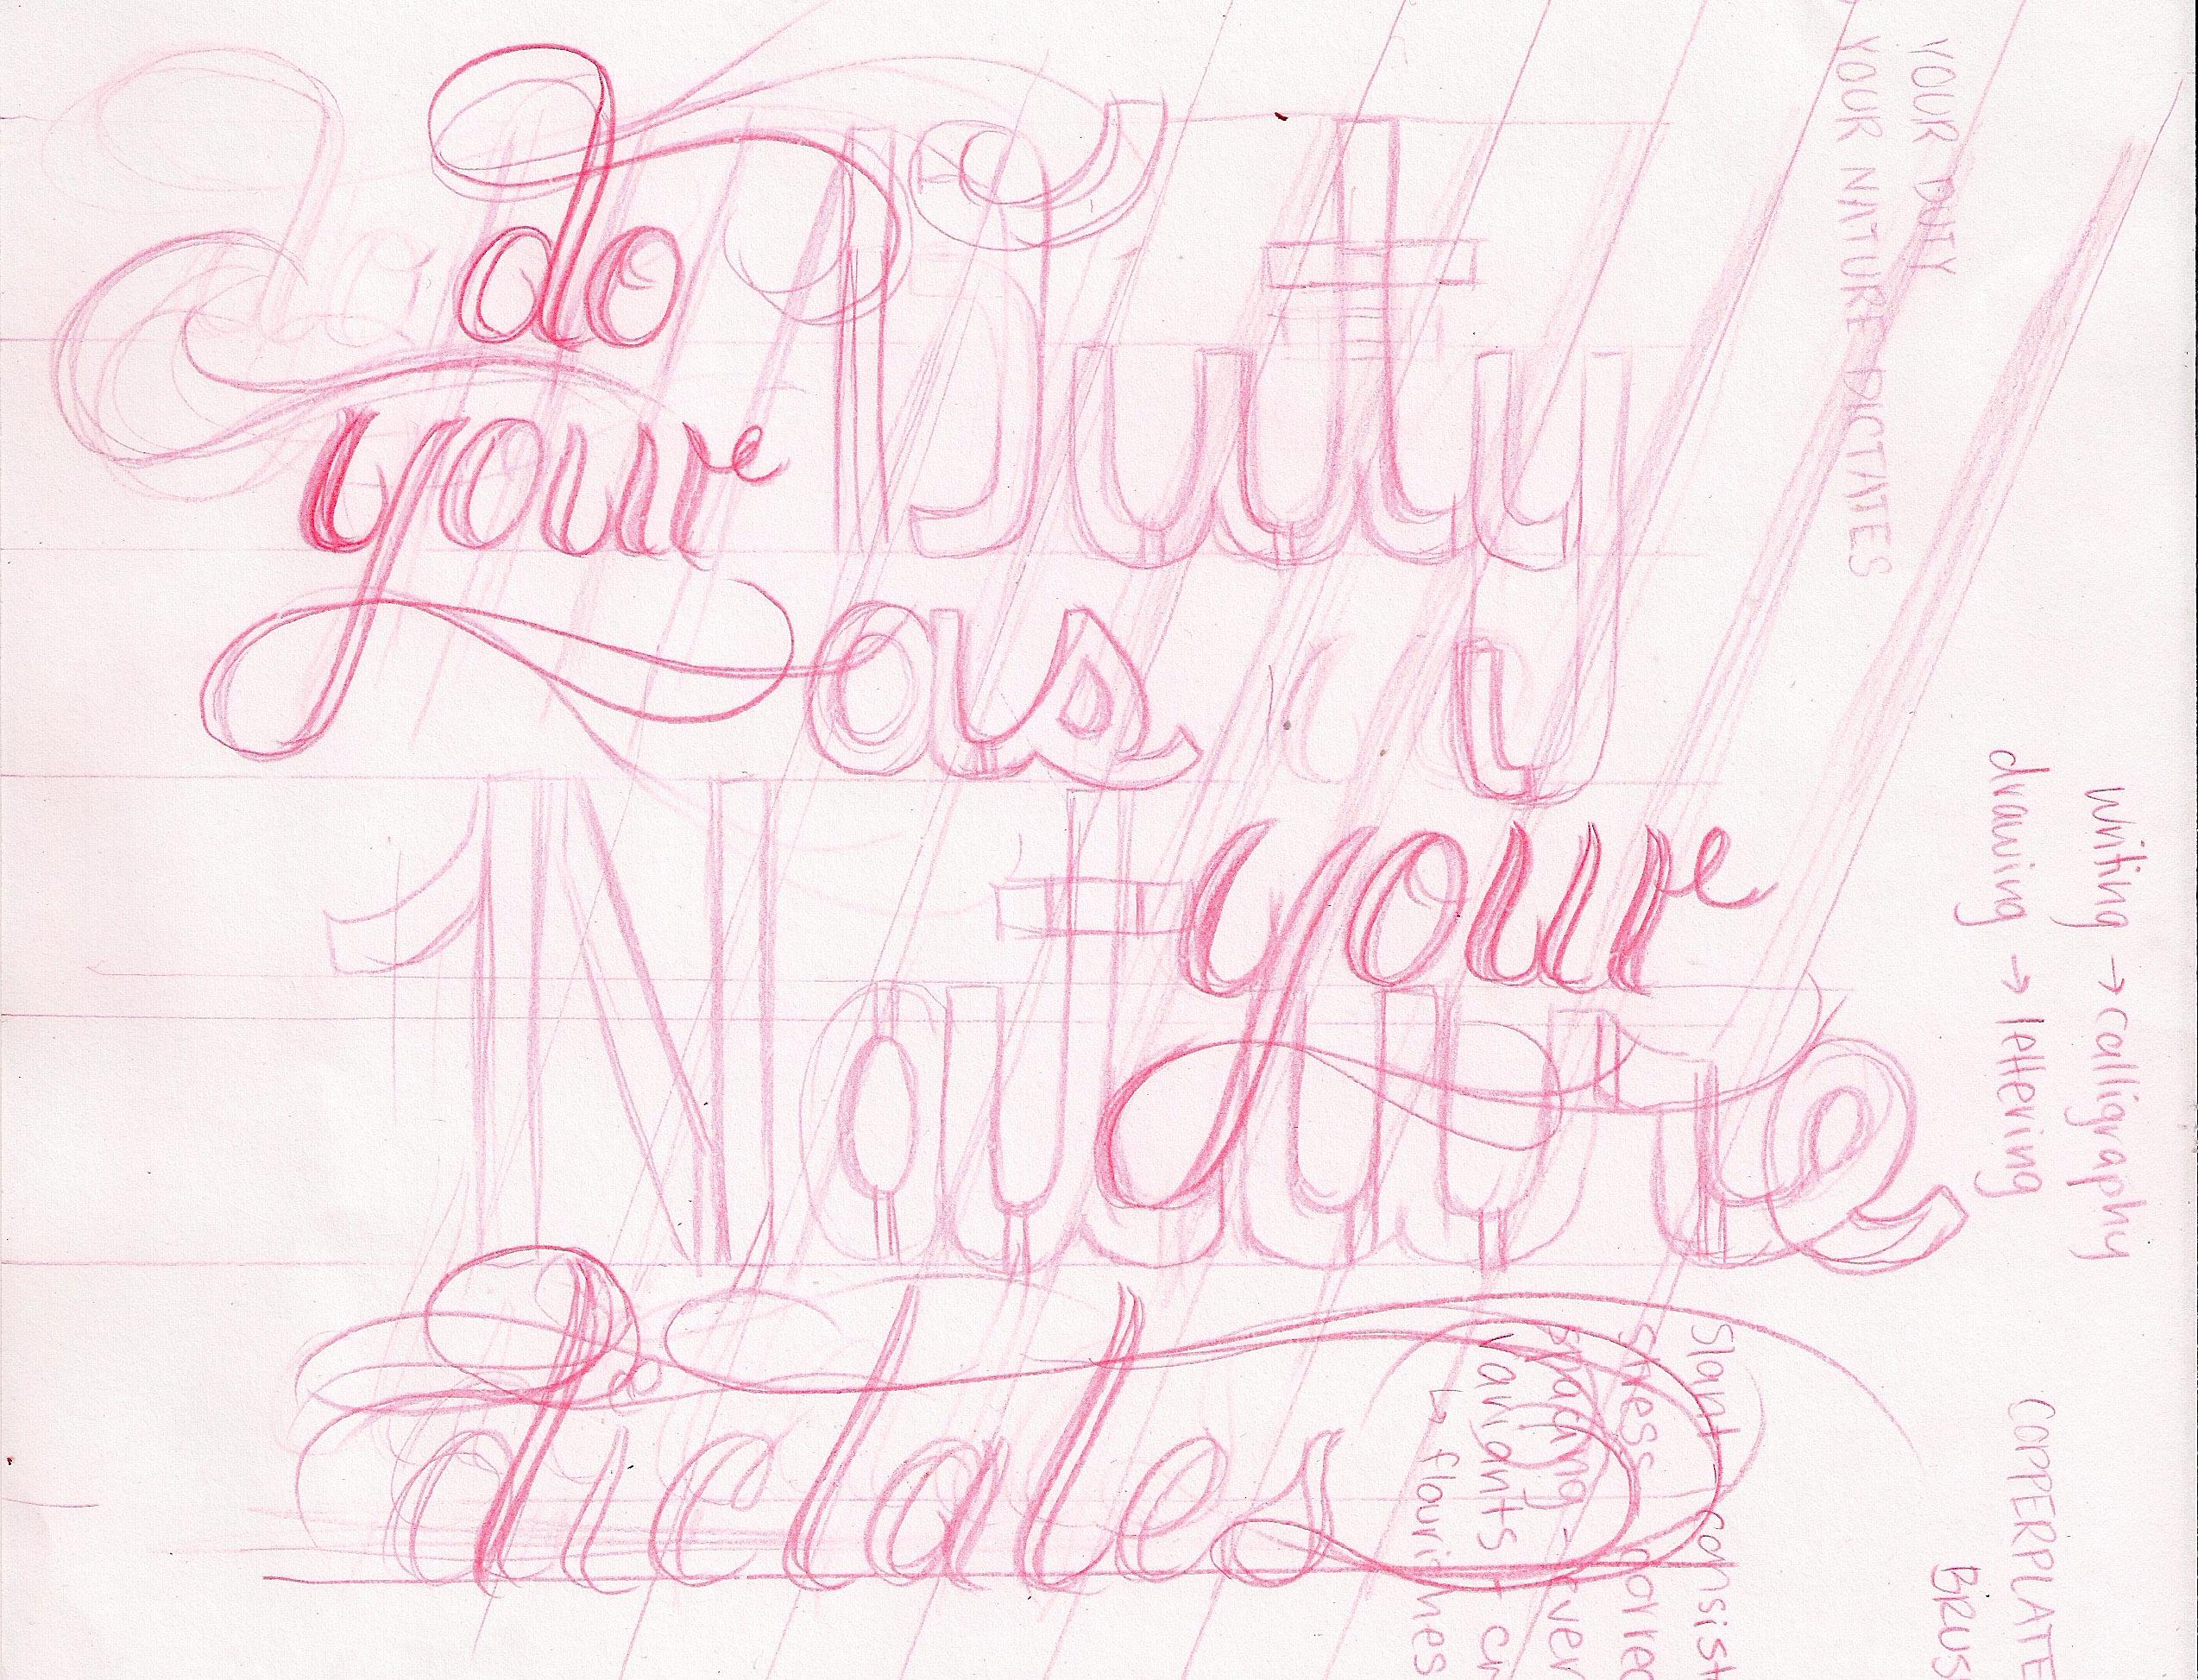 do
your Duty
as
your
Nature
dictates
YOUR DUTY
YOUR NATURE DICTATES
writing → calligraphy
drawing → lettering
COPPERPLATE
Slant
Stress
spacing -
variants -
↳ flourishes